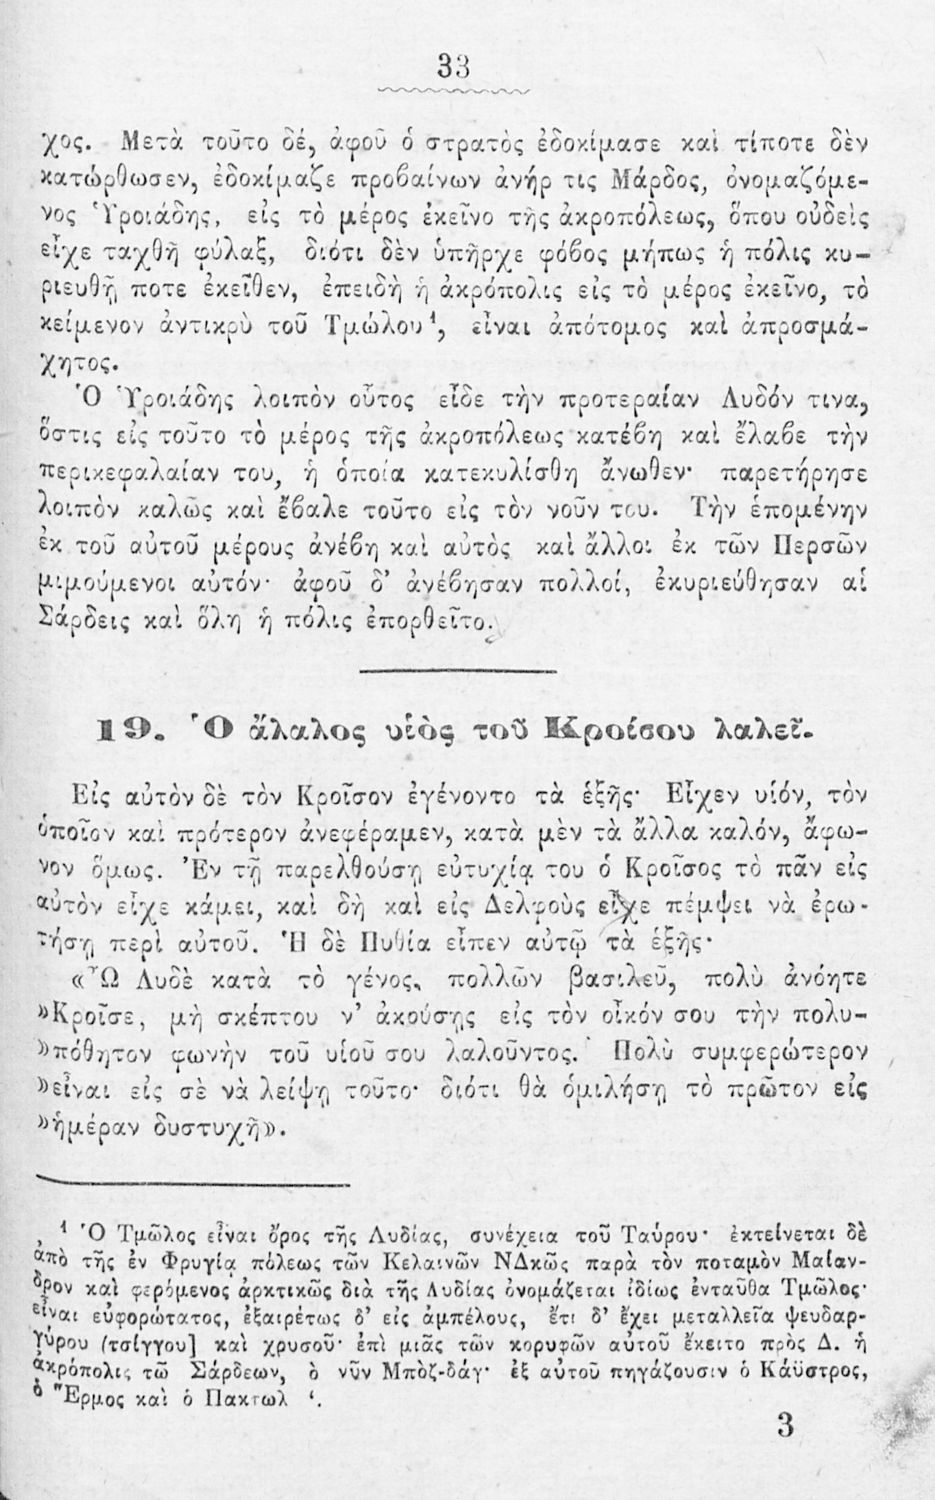 33
χος. Μετὰ τοῦτο δέ, ἀφοῦ ὁ στρατὸς ἐδοκίμασε καὶ τίποτε δὲν
κατώρθωσεν, ἐδοκίμαζε προβαίνων ἀνήρ τις Μάρδος, ὀνομαζόμε-
νος Ὑροιάδης, εἰς τὸ μέρος ἐκεῖνο τῆς ἀκροπόλεως, ὅπου οὐδεὶς
εἶχε ταχθῆ φύλαξ, διότι δὲν ὑπῆρχε φόβος μήπως ἡ πόλις κυ-
ριευθῇ ποτε ἐκεῖθεν, ἐπειδὴ ἡ ἀκρόπολις εἰς τὸ μέρος ἐκεῖνο, τὸ
κείμενον ἀντικρὺ τοῦ Τμώλου¹, εἶναι ἀπότομος καὶ ἀπροσμά-
χητος.
Ὁ Ὑροιάδης λοιπὸν οὗτος εἶδε τὴν προτεραίαν Λυδόν τινα,
ὅστις εἰς τοῦτο τὸ μέρος τῆς ἀκροπόλεως κατέβη καὶ ἔλαβε τὴν
περικεφαλαίαν του, ἡ ὁποία κατεκυλίσθη ἄνωθεν· παρετήρησε
λοιπὸν καλῶς καὶ ἔβαλε τοῦτο εἰς τὸν νοῦν του. Τὴν ἑπομένην
ἐκ τοῦ αὐτοῦ μέρους ἀνέβη καὶ αὐτὸς καὶ ἄλλοι ἐκ τῶν Περσῶν
μιμούμενοι αὐτόν· ἀφοῦ δ' ἀνέβησαν πολλοί, ἐκυριεύθησαν αἱ
Σάρδεις καὶ ὅλη ἡ πόλις ἐπορθεῖτο.
19. Ὁ ἄλαλος υἱὸς τοῦ Κροίσου λαλεῖ.
Εἰς αὐτὸν δὲ τὸν Κροῖσον ἐγένοντο τὰ ἑξῆς· Εἶχεν υἱόν, τὸν
ὁποῖον καὶ πρότερον ἀνεφέραμεν, κατὰ μὲν τὰ ἄλλα καλόν, ἄφω-
νον ὅμως. Ἐν τῇ παρελθούσῃ εὐτυχίᾳ του ὁ Κροῖσος τὸ πᾶν εἰς
αὐτὸν εἶχε κάμει, καὶ δὴ καὶ εἰς Δελφοὺς εἶχε πέμψει νὰ ἐρω-
τήσῃ περὶ αὐτοῦ. Ἡ δὲ Πυθία εἶπεν αὐτῷ τὰ ἑξῆς·
«Ὦ Λυδὲ κατὰ τὸ γένος, πολλῶν βασιλεῦ, πολὺ ἀνόητε
»Κροῖσε, μὴ σκέπτου ν' ἀκούσῃς εἰς τὸν οἶκόν σου τὴν πολυ-
»πόθητον φωνὴν τοῦ υἱοῦ σου λαλοῦντος. Πολὺ συμφερώτερον
»εἶναι εἰς σὲ νὰ λείψῃ τοῦτο· διότι θὰ ὁμιλήσῃ τὸ πρῶτον εἰς
»ἡμέραν δυστυχῆ».
¹ Ὁ Τμῶλος εἶναι ὄρος τῆς Λυδίας, συνέχεια τοῦ Ταύρου· ἐκτείνεται δὲ
ἀπὸ τῆς ἐν Φρυγίᾳ πόλεως τῶν Κελαινῶν ΝΔκῶς παρὰ τὸν ποταμὸν Μαίαν-
δρον καὶ φερόμενος ἀρκτικῶς διὰ τῆς Λυδίας ὀνομάζεται ἰδίως ἐνταῦθα Τμῶλος·
εἶναι εὐφορώτατος, ἐξαιρέτως δ' εἰς ἀμπέλους, ἔτι δ' ἔχει μεταλλεῖα ψευδαρ-
γύρου (τσίγγου] καὶ χρυσοῦ· ἐπὶ μιᾶς τῶν κορυφῶν αὐτοῦ ἔκειτο πρὸς Δ. ἡ
ἀκρόπολις τῶ Σάρδεων, ὁ νῦν Μπὸζ-δάγ· ἐξ αὐτοῦ πηγάζουσιν ὁ Κάϋστρος,
ὁ Ἕρμος καὶ ὁ Πακτωλ
3